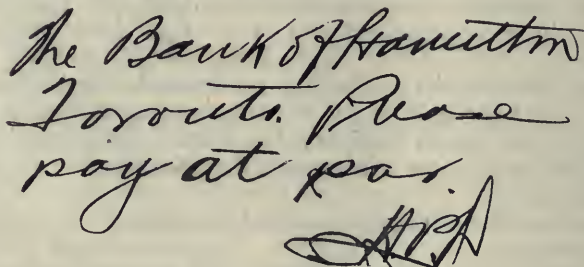 The Bank of Hamilton
Toronto. Please
pay at par.